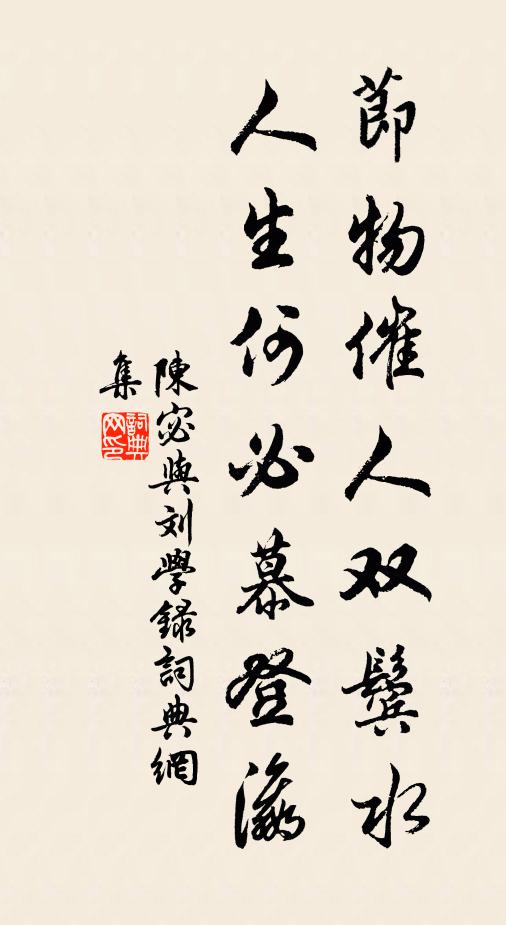 節物催人双鬓水
人生何必慕登瀛
陳宓與刘學録詞典網
集
詞典
网印